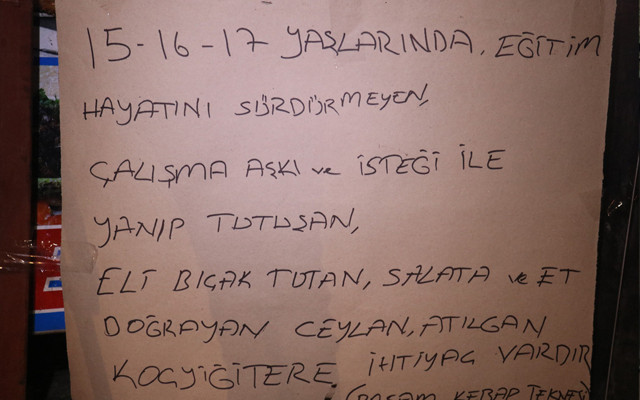 15-16-17 YAŞLARINDA, EĞİTİM
HAYATINI SÜRDÜRMEYEN,
ÇALIŞMA AŞKI ve İSTEĞİ İLE
YANIP TUTUŞAN,
ELİ BIÇAK TUTAN, SALATA ve ET
DOĞRAYAN CEYLAN, ATILGAN
KOÇYİĞİTERE İHTİYAÇ VARDIR
(PAŞAM KEBAP TEKNESİ